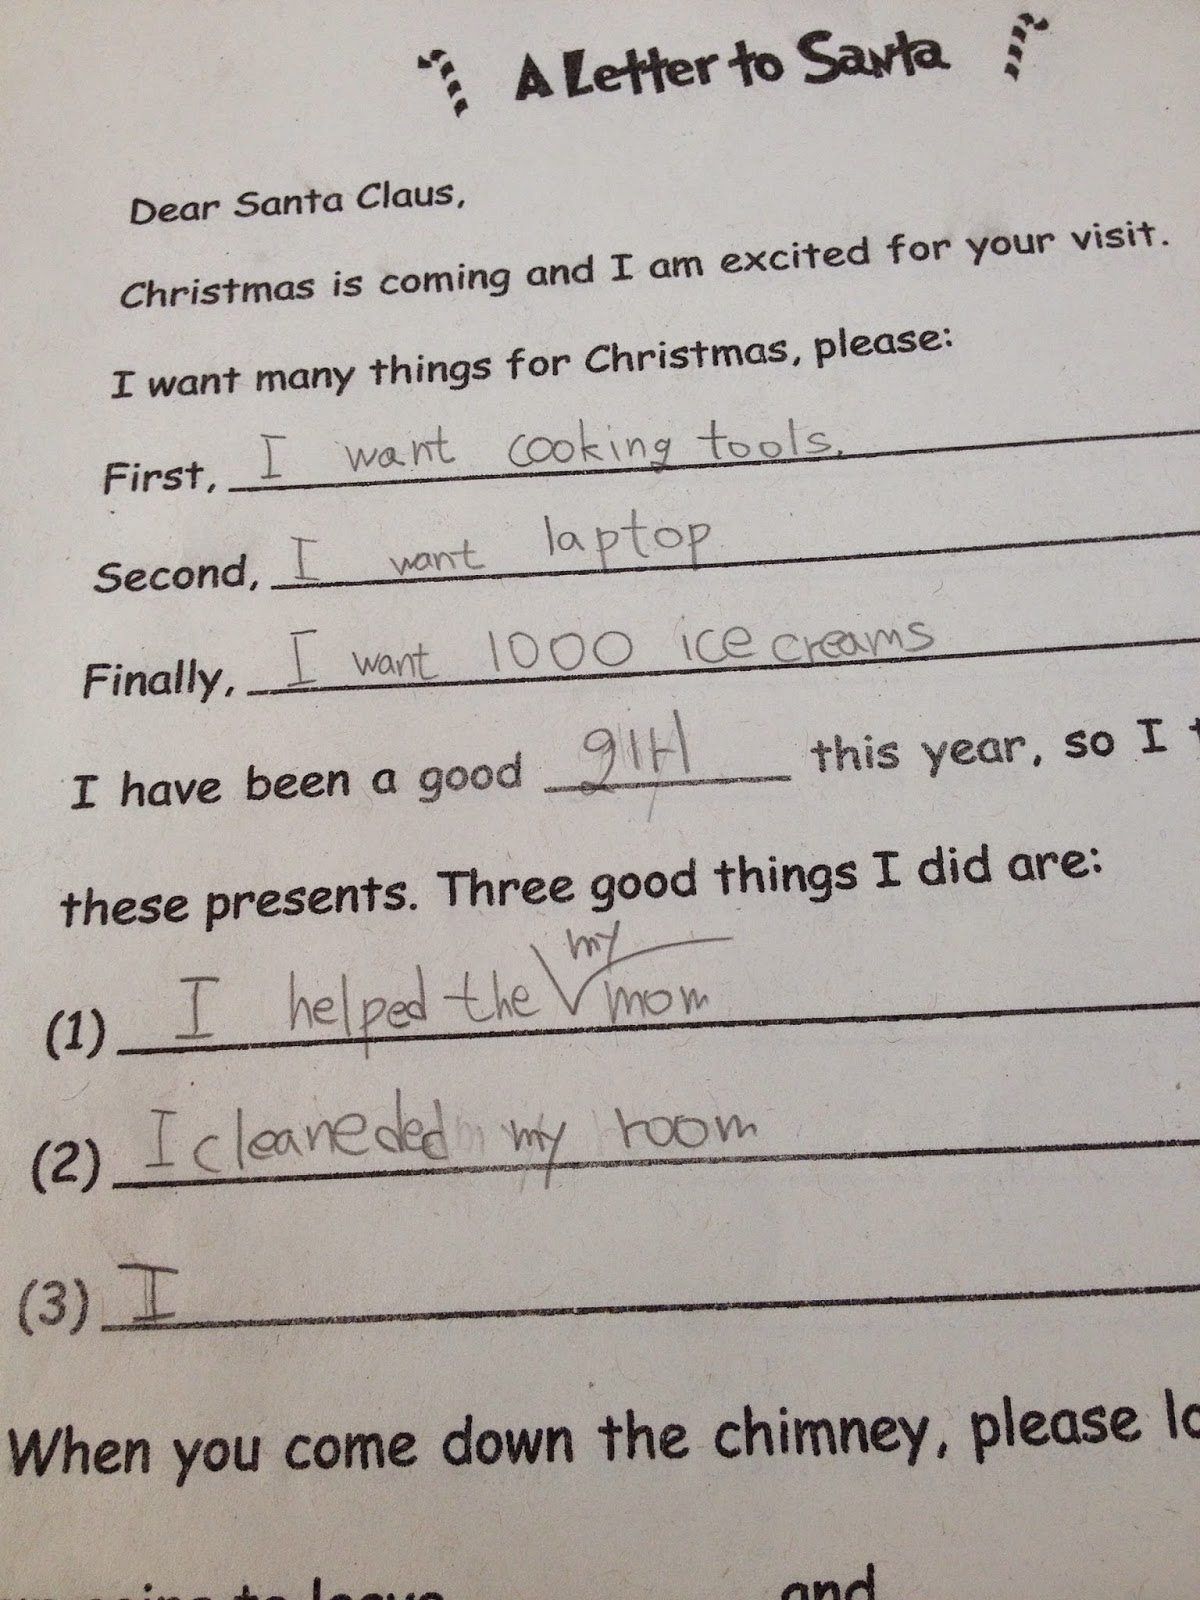 A Letter to Santa
Dear Santa Claus,
Christmas is coming and I am excited for your visit.
I want many things for Christmas, please:
First, I want cooking tools.
Second, I want laptop
Finally, I want 1000 ice creams
I have been a good girl this year, so I
these presents. Three good things I did are:
(1) I helped the my mom
(2) I cleaneded my room
(3) I
When you come down the chimney, please
going to leave and